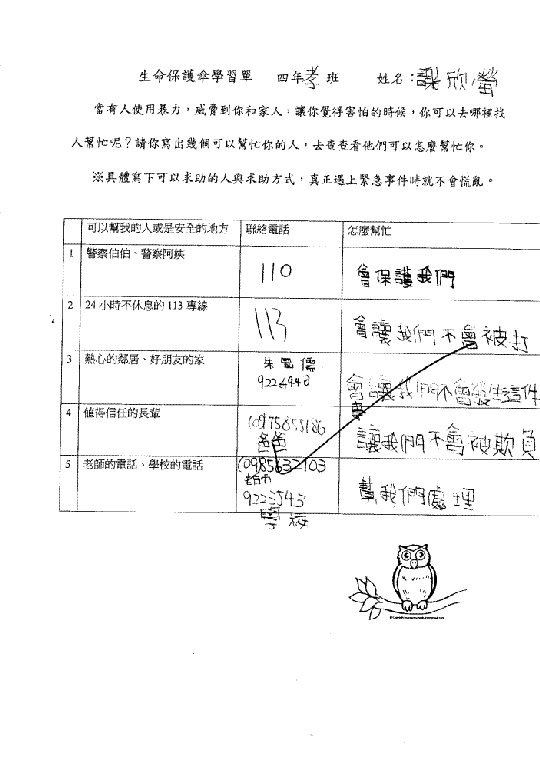 生命保護傘學習單 四年孝班 姓名：謝欣螢
當有人使用暴力，威脅到你和家人；讓你覺得害怕的時候，你可以去哪裡找
人幫忙呢？請你寫出幾個可以幫忙你的人，去查查看他們可以怎麼幫忙你。
※具體寫下可以求助的人與求助方式，真正遇上緊急事件時就不會慌亂。
可以幫我的人或是安全的地方 聯絡電話 怎麼幫忙
1 警察伯伯、警察阿姨 110 會保護我們
2 24 小時不休息的 113 專線 113 會讓我們不會被打
3 熱心的鄰居、好朋友的家 會讓我們不會發生這件
事
4 值得信任的長輩 讓我們不會被欺負
5 老師的電話、學校的電話 幫我們處理